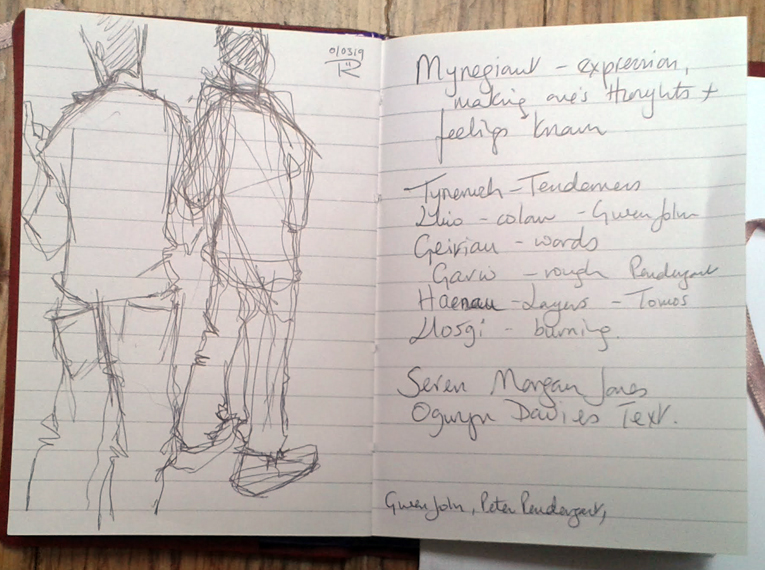 01/03/19
Mynegiant – expression,
making one's thoughts +
feelings known
Tynerwch – Tenderness
Lliw – colour – Gwen John
Geiriau – words
Garw – rough Pendergast
Haenau – Layers – Tomos
Llosgi – burning.
Seren Morgan Jones
Ogwyn Davies Text.
Gwen John, Peter Pendergast,